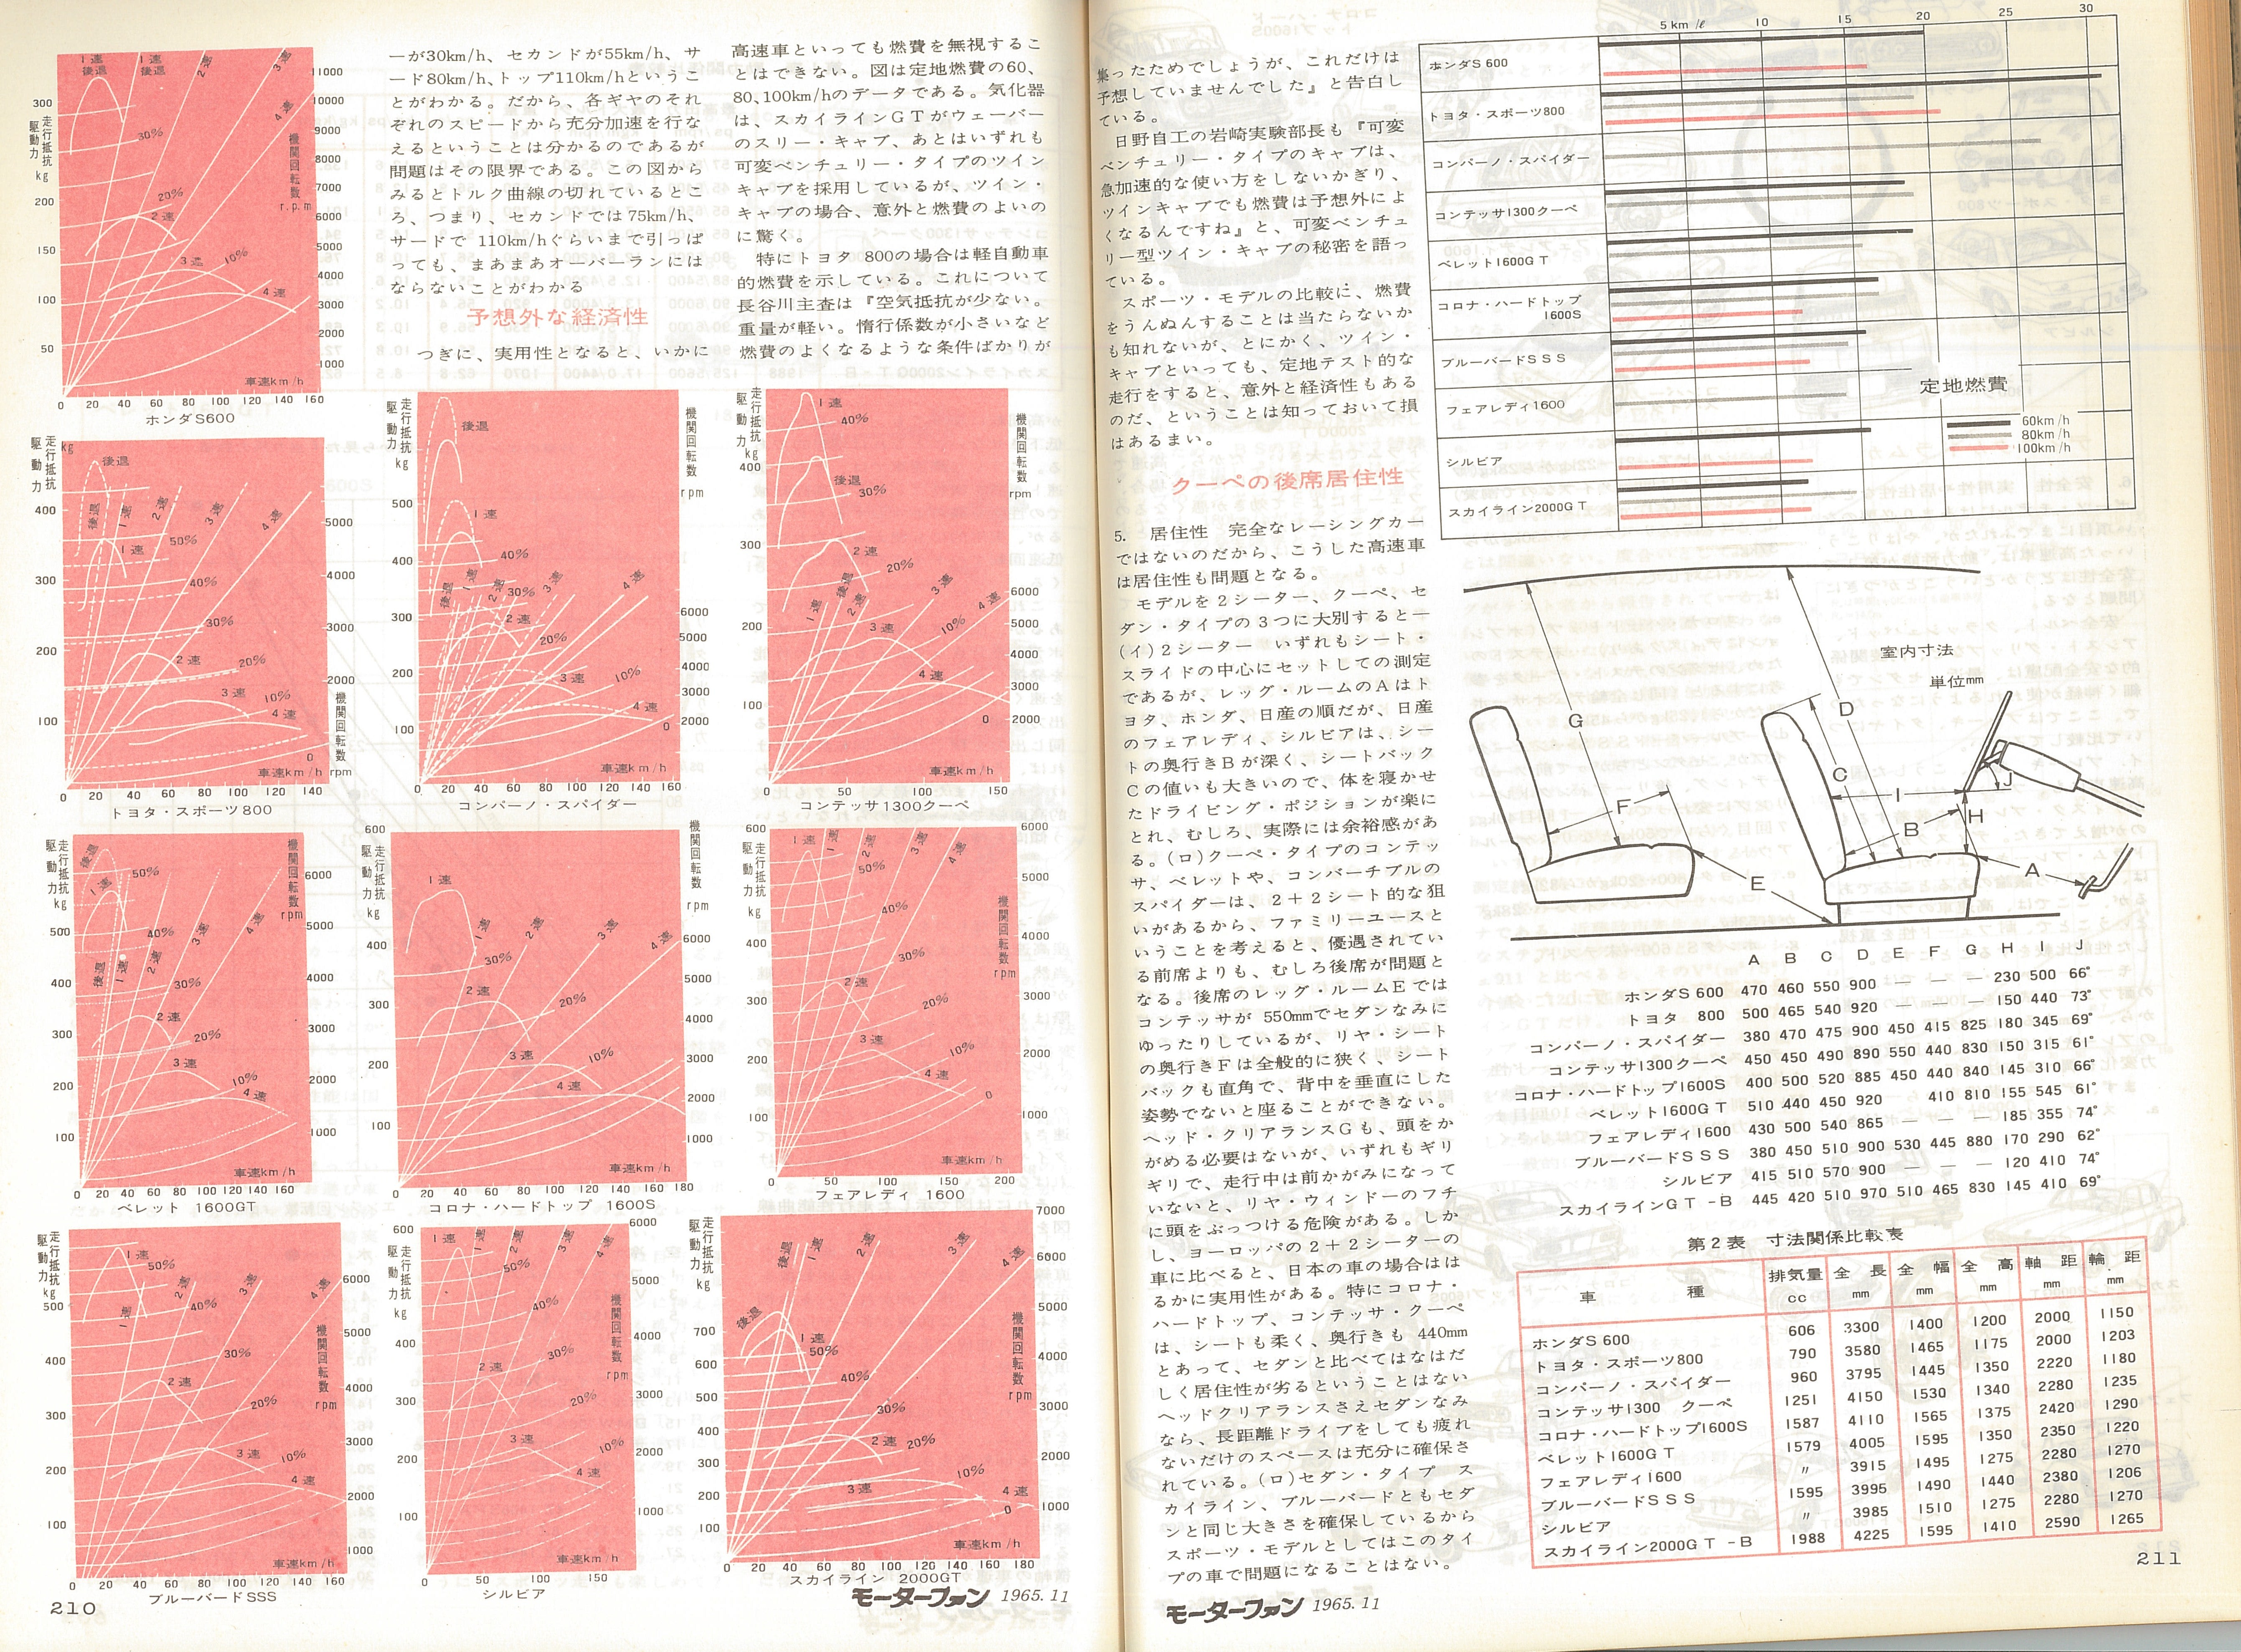 ーが30km/h、セカンドが55km/h、サ
ード80km/h、トップ110km/hというこ
とがわかる。だから、各ギヤのそれ
ぞれのスピードから充分加速を行な
えるということは分かるのであるが
問題はその限界である。この図から
みるとトルク曲線の切れているとこ
ろ、つまり、セカンドでは75km/h、
サードで 110km/hぐらいまで引っぱ
っても、まあまあオーバーランには
ならないことがわかる
予想外な経済性
つぎに、実用性となると、いかに
高速車といっても燃費を無視するこ
とはできない。図は定地燃費の60、
80、100km/hのデータである。気化器
は、スカイラインGTがウェーバー
のスリー・キャブ、あとはいずれも
可変ベンチュリー・タイプのツイン
キャブを採用しているが、ツイン・
キャブの場合、意外と燃費のよいの
に驚く。
特にトヨタ 800の場合は軽自動車
的燃費を示している。これについて
長谷川主査は『空気抵抗が少ない。
重量が軽い。惰行係数が小さいなど
燃費のよくなるような条件ばかりが
ホンダS600
トヨタ・スポーツ800
コンパーノ・スパイダー
コンテッサ1300クーペ
ベレット 1600GT
コロナ・ハードトップ 1600S
フェアレディ 1600
ブルーバードSSS
シルビア
スカイライン 2000GT
210
モーターファン 1965.11
集ったためでしょうが、これだけは
予想していませんでした』と告白し
ている。
日野自工の岩崎実験部長も『可変
ベンチュリー・タイプのキャブは、
急加速的な使い方をしないかぎり、
ツインキャブでも燃費は予想外によ
くなるんですね』と、可変ベンチュ
リー型ツイン・キャブの秘密を語っ
ている。
スポーツ・モデルの比較に、燃費
をうんぬんすることは当たらないか
も知れないが、とにかく、ツイン・
キャブといっても、定地テスト的な
走行をすると、意外と経済性もある
のだ、ということは知っておいて損
はあるまい。
クーペの後席居住性
5. 居住性 完全なレーシングカー
ではないのだから、こうした高速車
は居住性も問題となる。
モデルを2シーター、クーペ、セ
ダン・タイプの3つに大別すると—
(イ)2シーター いずれもシート・
スライドの中心にセットしての測定
であるが、レッグ・ルームのAはト
ヨタ、ホンダ、日産の順だが、日産
のフェアレディ、シルビアは、シー
トの奥行きBが深く、シートバック
Cの値いも大きいので、体を寝かせ
たドライビング・ポジションが楽に
とれ、むしろ、実際には余裕感があ
る。(ロ)クーペ・タイプのコンテッ
サ、ベレットや、コンバーチブルの
スパイダーは、2+2シート的な狙
いがあるから、ファミリーユースと
いうことを考えると、優遇されてい
る前席よりも、むしろ後席が問題と
なる。後席のレッグ・ルームEでは
コンテッサが 550mmでセダンなみに
ゆったりしているが、リヤ・シート
の奥行きFは全般的に狭く、シート
バックも直角で、背中を垂直にした
姿勢でないと座ることができない。
ヘッド・クリアランスGも、頭をか
がめる必要はないが、いずれもギリ
ギリで、走行中は前かがみになって
いないと、リヤ・ウィンドーのフチ
に頭をぶっつける危険がある。しか
し、ヨーロッパの2+2シーターの
車に比べると、日本の車の場合はは
るかに実用性がある。特にコロナ・
ハードトップ、コンテッサ・クーペ
は、シートも柔く、奥行きも 440mm
とあって、セダンと比べてはなはだ
しく居住性が劣るということはない
ヘッドクリアランスさえセダンなみ
なら、長距離ドライブをしても疲れ
ないだけのスペースは充分に確保さ
れている。(ロ)セダン・タイプ ス
カイライン、ブルーバードともセダ
ンと同じ大きさを確保しているから
スポーツ・モデルとしてはこのタイ
プの車で問題になることはない。
5km/ℓ 10 15 20 25 30
ホンダS600
トヨタ・スポーツ800
コンパーノ・スパイダー
コンテッサ1300クーペ
ベレット1600GT
コロナ・ハードトップ
1600S
ブルーバードSSS
フェアレディ1600
シルビア
スカイライン2000GT
定地燃費
60km/h
80km/h
100km/h
室内寸法
単位mm
G D C F I J B H E A
A B C D E F G H I J
ホンダS600 470 460 550 900 — — — 230 500 66°
トヨタ 800 500 465 540 920 — — — 150 440 73°
コンパーノ・スパイダー 380 470 475 900 450 415 825 180 345 69°
コンテッサ1300クーペ 450 450 490 890 550 440 830 150 315 61°
コロナ・ハードトップ1600S 400 500 520 885 450 440 840 145 310 66°
ベレット1600GT 510 440 450 920 410 810 155 545 61°
フェアレディ1600 430 500 540 865 — — — 185 355 74°
ブルーバードSSS 380 450 510 900 530 445 880 170 290 62°
シルビア 415 510 570 900 — — — 120 410 74°
スカイラインGT-B 445 420 510 970 510 465 830 145 410 69°
第2表 寸法関係比較表
車種 排気量cc 全長mm 全幅mm 全高mm 軸距mm 輪距mm
ホンダS600 606 3300 1400 1200 2000 1150
トヨタ・スポーツ800 790 3580 1465 1175 2000 1203
コンパーノ・スパイダー 960 3795 1445 1350 2220 1180
コンテッサ1300 クーペ 1251 4150 1530 1340 2280 1235
コロナ・ハードトップ1600S 1587 4110 1565 1375 2420 1290
ベレット1600GT 1579 4005 1595 1350 2350 1220
フェアレディ1600 〃 3915 1495 1275 2280 1270
ブルーバードSSS 1595 3995 1490 1440 2380 1206
シルビア 〃 3985 1510 1275 2280 1270
スカイライン2000GT-B 1988 4225 1595 1410 2590 1265
モーターファン 1965.11
211